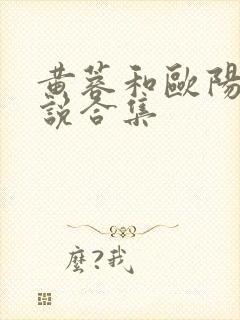 黄蓉和歐陽
說合集
麼?我